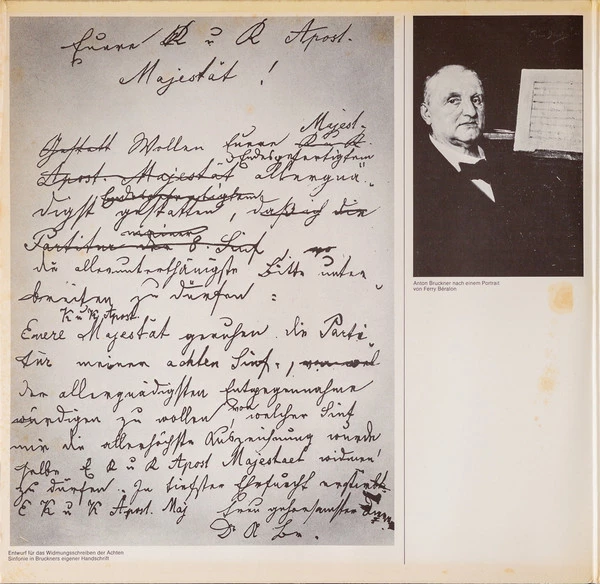 Euere K u K Apost.
Majestät !
Majest-
Gestatt Wollen Euere K u K.
Endesgefertigtem
Apost. Majestät allergnä-
Endesgefertigtem
digst gestatten, daß ich die
meiner
Partitur der 8. Sinf
die allerunterthänigste Bitte unter-
breiten zu dürfen :
K u K Apost.
Euere Majestät geruhen die Parti-
tur meiner achten Sinf.,
der allergnädigsten Entgegennahme
würdigen zu wollen, von welcher Sinf
mir die allerhöchste Auszeichnung wurde
selbe E K u K Apost Majestaet widmen
zu dürfen. In tiefster Ehrfurcht erstirbt
E K u K Apost. Maj
treu gehorsamster
Dr A Br.
Entwurf für das Widmungsschreiben der Achten
Sinfonie in Bruckners eigener Handschrift
Anton Bruckner nach einem Portrait
von Ferry Bératon